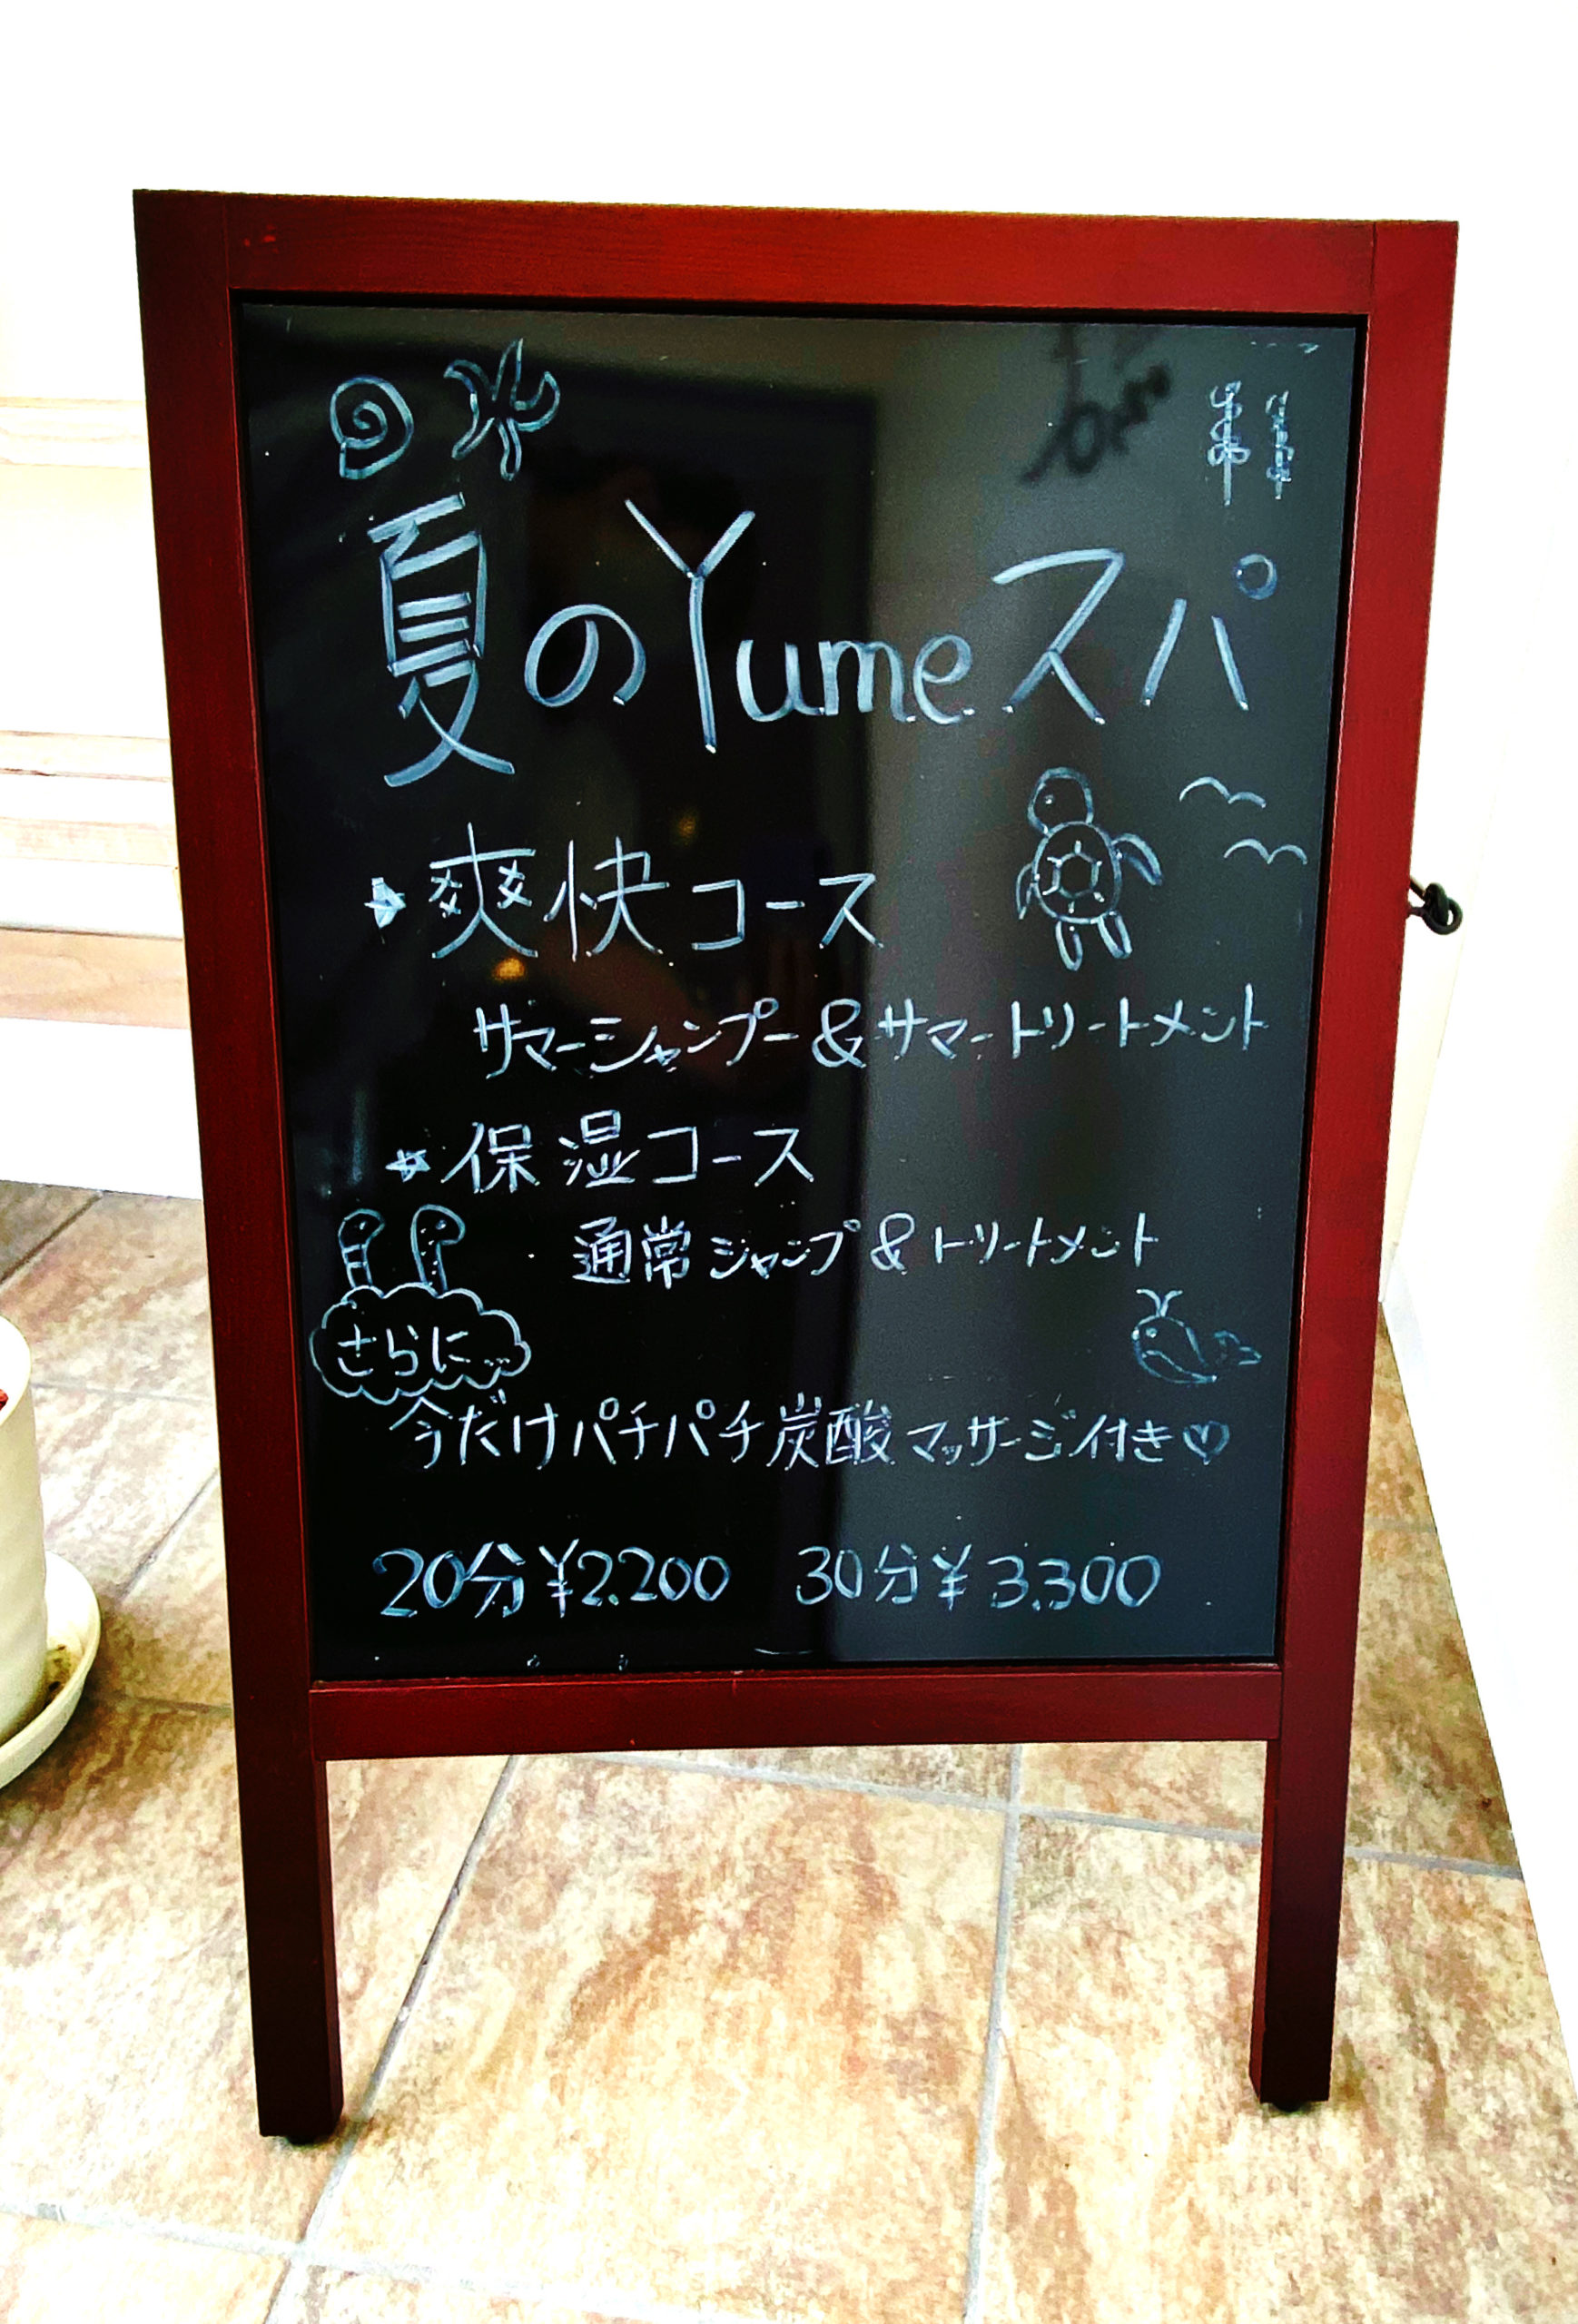 夏のYumeスパ
爽快コース
サマーシャンプー&サマートリートメント
保湿コース
通常シャンプ&トリートメント
さらに…
今だけパチパチ炭酸マッサージ付き♡
20分¥2.200 30分¥3.300